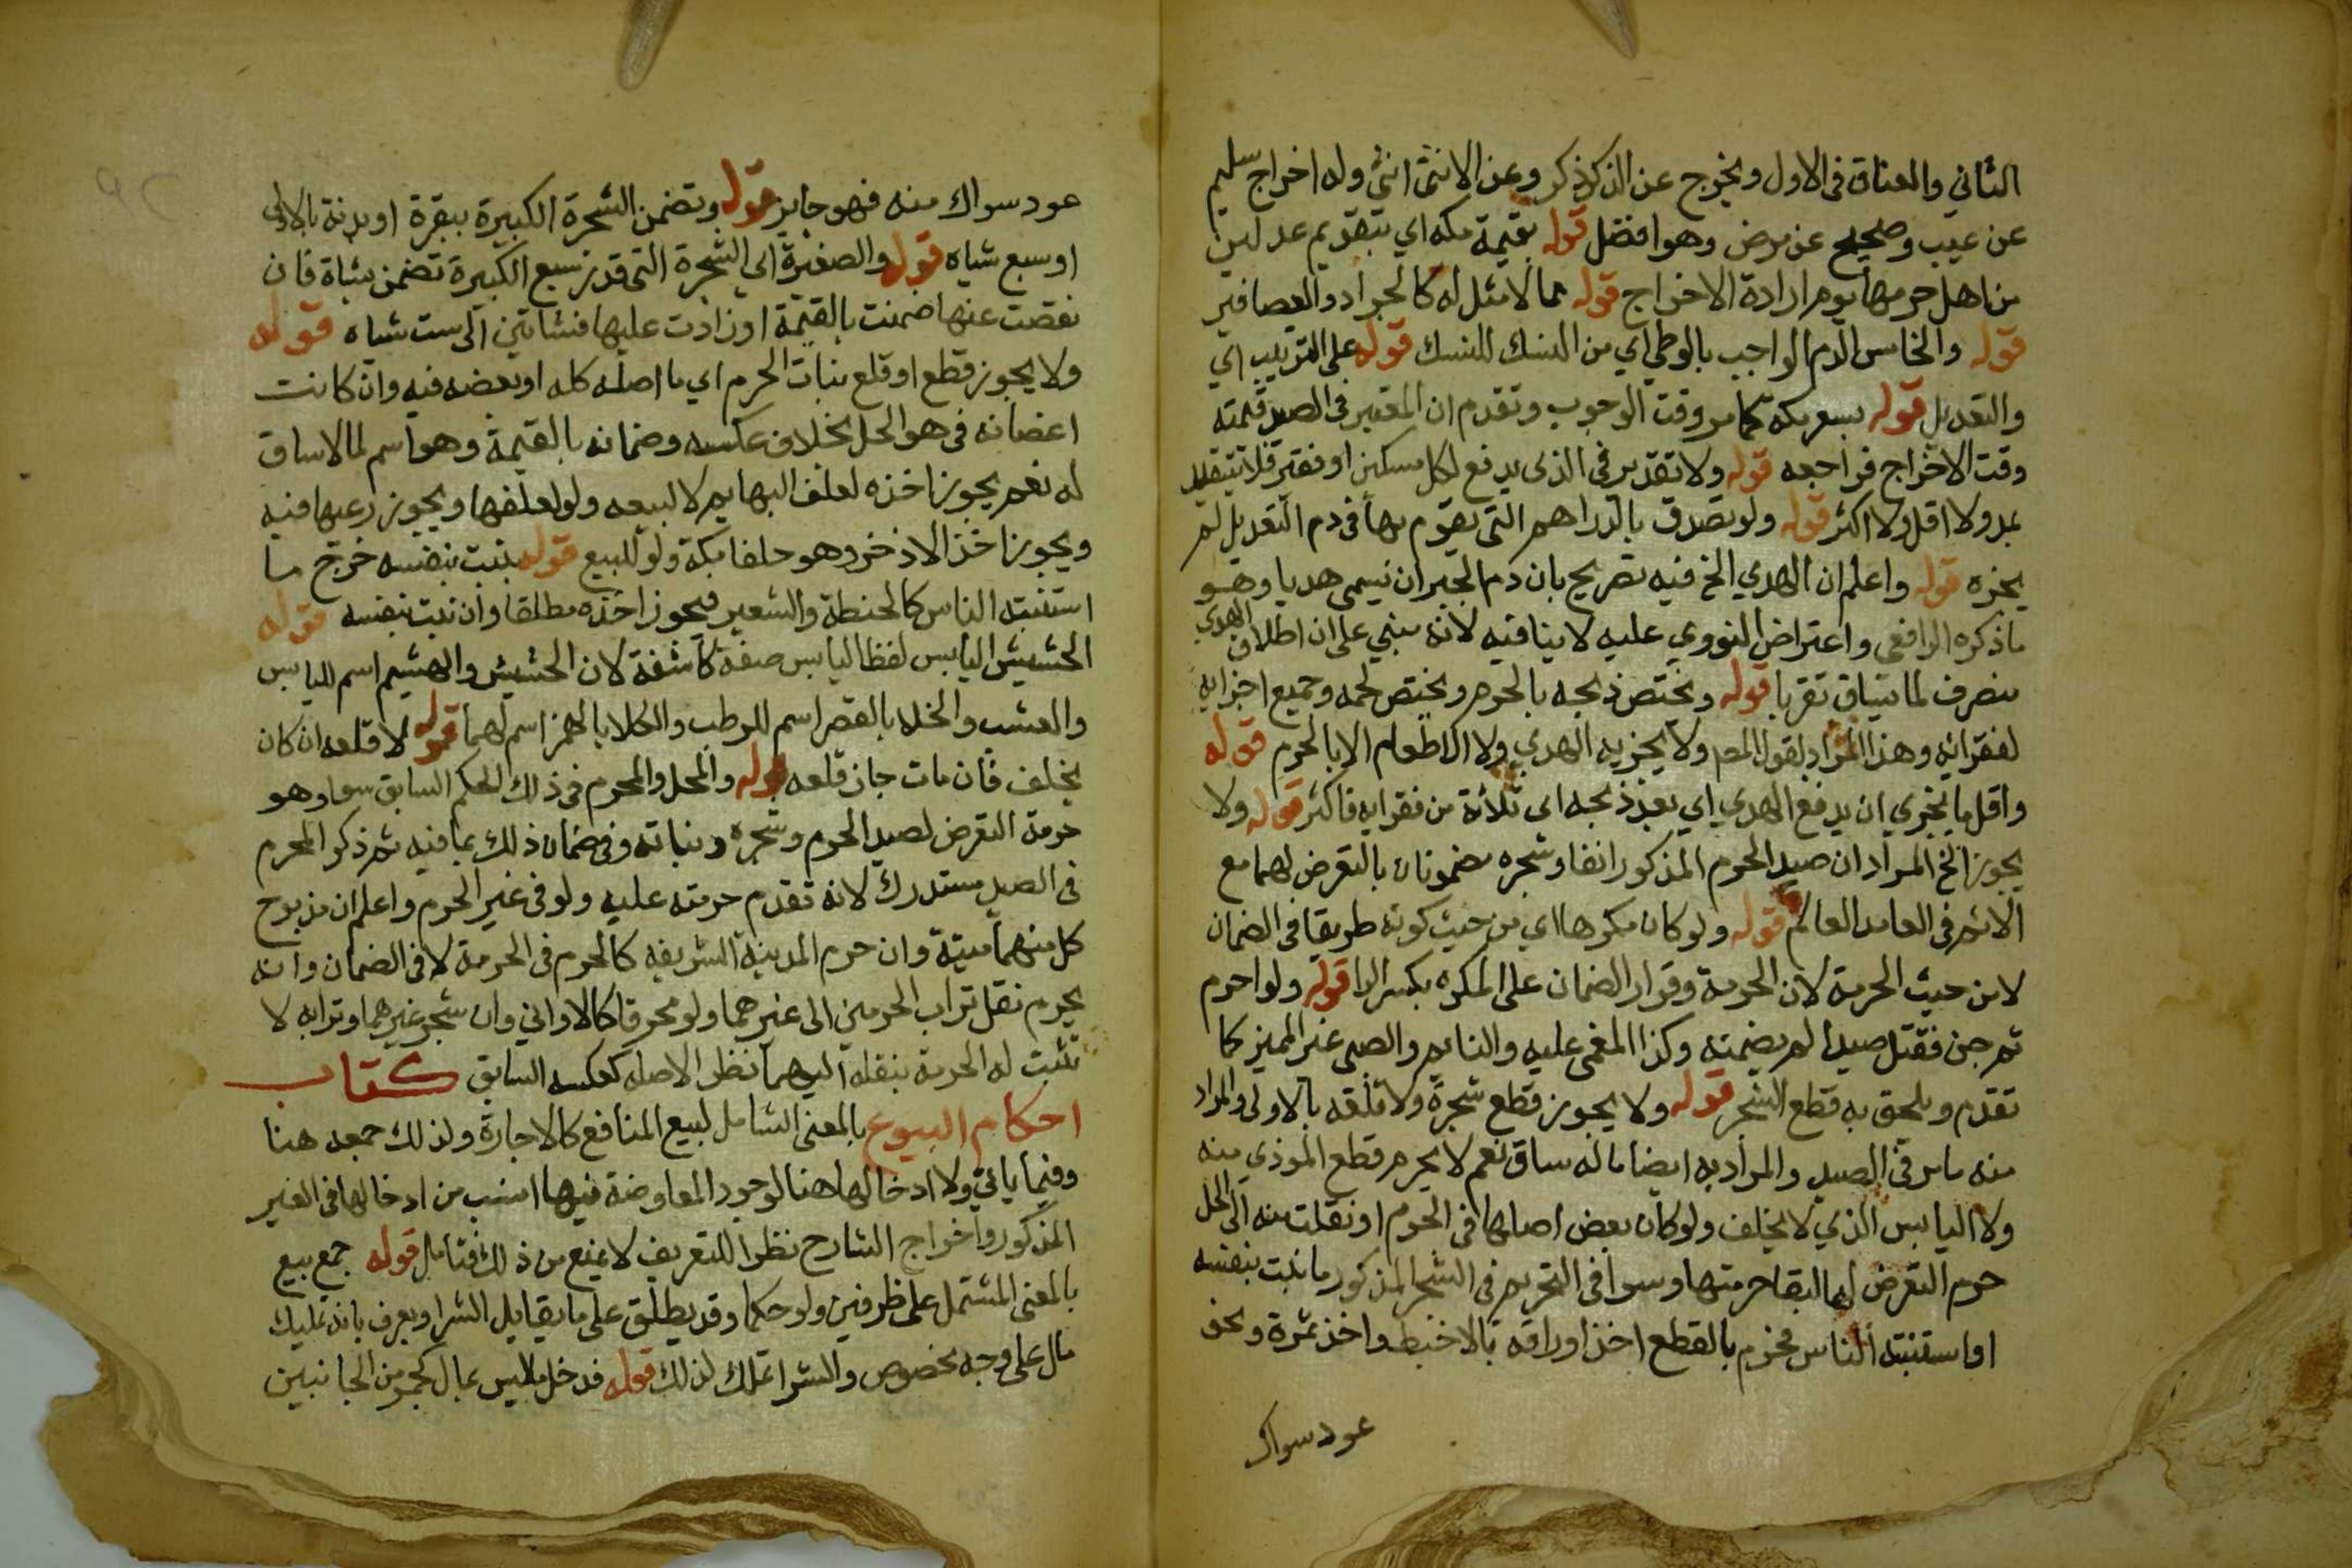 الثاني والعناق في الاول ويخرج عن الذكر ذكر وعن الانثى انثى وله اخراج سليم
عن عيب وصحيح عن مرض وهو افضل قوله بقيمة مكة اي بتقديم عدلين
من اهل حرمها يوم ارادة الاخراج قوله مما لا مثل له كالجراد والعصافير
قوله والخامس الدم الواجب بالوطي اي من النسك للنسك قوله على الترتيب اي
والتعديل قوله بسعر مكة كما مر وقت الوجوب وتقدم ان المعتبر في الصيد قيمته
وقت الاخراج فراجعه قوله ولا تقدير في الذي يدفع لكل مسكين او فقير فلا يتقيد
بمد ولا اقل ولا اكثر قوله ولو تصدق بالدراهم التي يقوم بها في دم التعديل لم
يجزه قوله واعلم ان الهدي الخ فيه تصريح بان دم الجبران يسمى هديا وهو
ما ذكره الرافعي واعتراض النووي عليه لا ينافيه لانه مبني على ان اطلاق الهدي
منصرف لما يساق تقربا قوله ويختص ذبحه بالحرم ويختص لحمه وجميع اجزايه
لفقرائه وهذا المراد بقول المص ولا يجزيه الهدي ولا الاطعام الا بالحرم قوله
واقل ما يجزي ان يدفع الهدي اي بعد ذبحه الى ثلاثة من فقرايه فاكثر قوله ولا
يجوز الخ المراد ان صيد الحرم المذكور انفا وشجره مضمونان بالتعرض لهما مع
الاثم في العامد العالم قوله ولو كان مكرها اي من حيث كونه طريقا في الضمان
لا من حيث الحرمة لان الحرمة وقرار الضمان على المكره بكسر الرا قوله ولو احرم
ثم جن فقتل صيدا لم يضمنه وكذا المغمى عليه والنايم والصبي غير المميز كما
تقدم ويلحق به قطع الشجر قوله ولا يجوز قطع شجرة ولا قلعه بالاولى والمراد
منه ما مر في الصيد والمراد به ايضا ما له ساق نعم لا يحرم قطع الموذي منه
ولا اليابس الذي لا يخلف ولو كان بعض اصلها في الحرم او نقلت منه الى الحل
حرم التعرض لها لبقا حرمتها وسوا في التحريم في الشجر المذكور ما نبت بنفسه
او استنبته الناس فخرم بالقطع اخذ اوراقه بالاخبط واخذ ثمرة ونحو
عود سواك
عود سواك منه فهو جايز قوله وتضمن الشجرة الكبيرة ببقرة او بدنة بالاولى
او سبع شياه قوله والصغيرة اي الشجرة التي قدر سبع الكبيرة تضمن بشاة فان
نقصت عنها ضمنت بالقيمة او زادت عليها فشاتين الى ست شياه قوله
ولا يجوز قطع او قلع نبات الحرم اي ما اصله كله او بعضه فيه وان كانت
اغصانه في هو الحل بخلاف عكسه وضمانه بالقيمة وهو اسم لما لا ساق
له نعم يجوز اخذه لعلف البهايم لا لبيعه ولو لعلفها ويجوز رعيها فيه
ويجوز اخذ الاذخر وهو حلفا مكة ولو للبيع قوله ينبت بنفسه خرج ما
استنبته الناس كالحنطة والشعير فيجوز اخذه مطلقا وان نبت بنفسه قوله
الحشيش اليابس لفظ اليابس صفة كاشفة لان الحشيش والهشيم اسم لليابس
والعشب والخلا بالقصر اسم للرطب والكلا بالهمز اسم لهما قوله لا قلعه ان كان
يخلف فان مات جاز قلعه قوله والمحل والمحرم في ذلك الحكم السابق سوا وهو
حرمة التعرض لصيد الحرم وشجره ونباته وفي ضمان ذلك بما فيه ثم ذكر المحرم
في الصيد مستدرك لانه تقدم حرمته عليه ولو في غير الحرم واعلم ان مذبوح
كل منهما ميتة وان حرم المدينة الشريفه كالحرم في الحرمة لا في الضمان وانه
يحرم نقل تراب الحرمين الى غيرهما ولو محرقا كالاواني وان شجر غيرهما وترابه لا
تثبت له الحرمة بنقله اليهما نظر الاصله كعكسه السابق كتاب
احكام البيوع بالمعنى الشامل لبيع المنافع كالاجارة ولذلك جمعه هنا
وفيما ياتي ولا ادخالها هنا لوجود المعاوضة فيها انسب من ادخالها في الغير
المذكور واخراج الشارح نظرا للتعريف لا يمنع من ذلك فتامل قوله جمع بيع
بالمعنى المشتمل على ظرفين ولو حكما وقد يطلق على ما يقابل الشرا ويعرف بانه تمليك
مال على وجه مخصوص والشرا تملك لذلك قوله فدخل ما ليس بمال كخمر من الجانبين